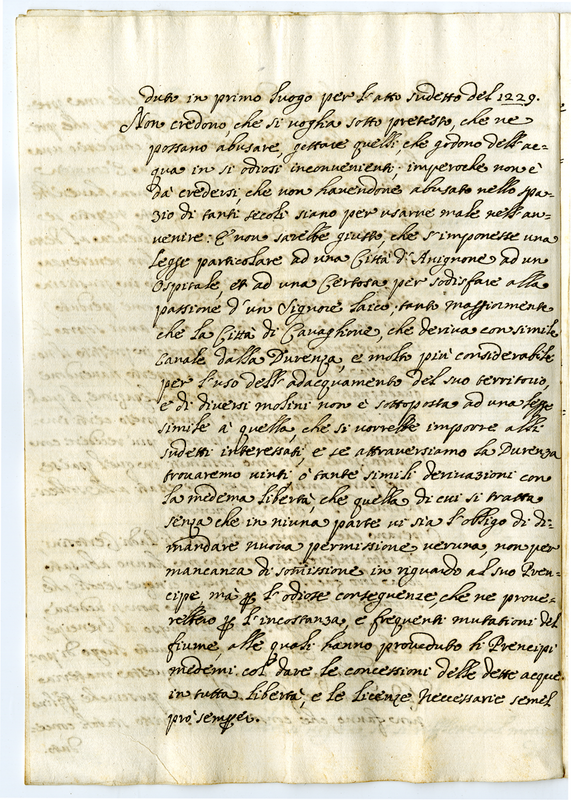 duto in primo luogo per l'atto sudetto del 1229.
Non credono, che si voglia sotto pretesto, che ne
possano abusare, gettare quelli che godono dell'ac-
qua in si odiosi inconvenienti; imperoche non è
da credersi, che non havendone abusato nello spa-
zio di tanti secoli siano per usarne male nell'au-
venire: E' non sarebbe giusto, che s'imponesse una
legge particolare ad una Città d'Avignone ad un
Ospitale, et ad una Certosa per sodisfare alla
passione d'un Signore laico, tanto maggiormente
che la Città di Cavaglione, che deriva con simile
Canale dalla Durenza, e molto più considerabile
per l'uso dell'adacquamento del suo territorio,
e di diversi molini non è sottoposta ad una legge
simile a quella, che si vorrebbe imporre alli
sudetti interessati, e se attraversiamo la Durenza
trovaremo vinti ò tante simili derivazioni con
la medema libertà, che quella di cui si tratta
senza che in niuna parte vi sia l'obligo di di-
mandare nuova permissione veruna, non per
mancanza di somissione in riguardo al suo Pren-
cipe, ma p l'odiose conseguenze, che ne prove-
rebbero p l'incostanza, e frequenti mutationi del
fiume, alle quali hanno proveduto li Prencipi
medemi col dare le concessioni delle dette acque
in tutta libertà, e le licenze necessarie semel
pro semper.